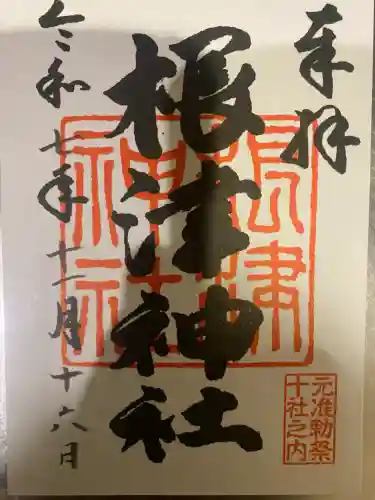 奉拝
根津神社
令和七年十一月十六日
根津
神社
元准勅祭
十社之内